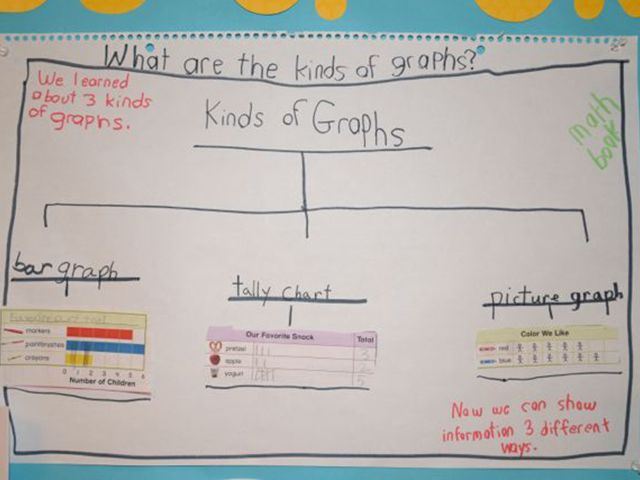 What are the kinds of graphs?
We learned
about 3 kinds
of graphs.
Kinds of Graphs
math
book
bar graph
tally chart
picture graph
markers
paintbrushes
crayons
0 1 2 3 4 5 6
Number of Children
Our Favorite Snack Total
pretzel 3
apple 2
yogurt 5
Color We Like
red
blue
Now we can show
information 3 different
ways.